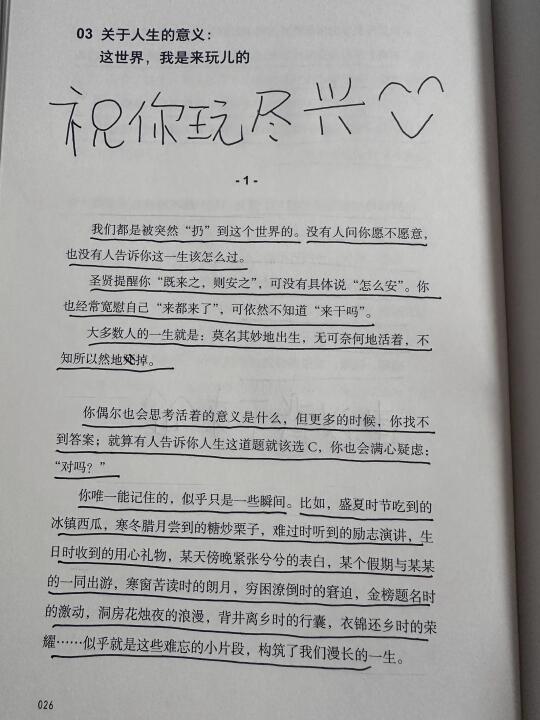 03 关于人生的意义：
这世界，我是来玩儿的
祝你玩尽兴
- 1 -
我们都是被突然“扔”到这个世界的。没有人问你愿不愿意，
也没有人告诉你这一生该怎么过。
圣贤提醒你“既来之，则安之”，可没有具体说“怎么安”。你
也经常宽慰自己“来都来了”，可依然不知道“来干吗”。
大多数人的一生就是：莫名其妙地出生，无可奈何地活着，不
知所以然地掉。
你偶尔也会思考活着的意义是什么，但更多的时候，你找不
到答案；就算有人告诉你人生这道题就该选 C，你也会满心疑虑：
“对吗？”
你唯一能记住的，似乎只是一些瞬间。比如，盛夏时节吃到的
冰镇西瓜，寒冬腊月尝到的糖炒栗子，难过时听到的励志演讲，生
日时收到的用心礼物，某天傍晚紧张兮兮的表白，某个假期与某某
的一同出游，寒窗苦读时的朗月，穷困潦倒时的窘迫，金榜题名时
的激动，洞房花烛夜的浪漫，背井离乡时的行囊，衣锦还乡时的荣
耀……似乎就是这些难忘的小片段，构筑了我们漫长的一生。
026